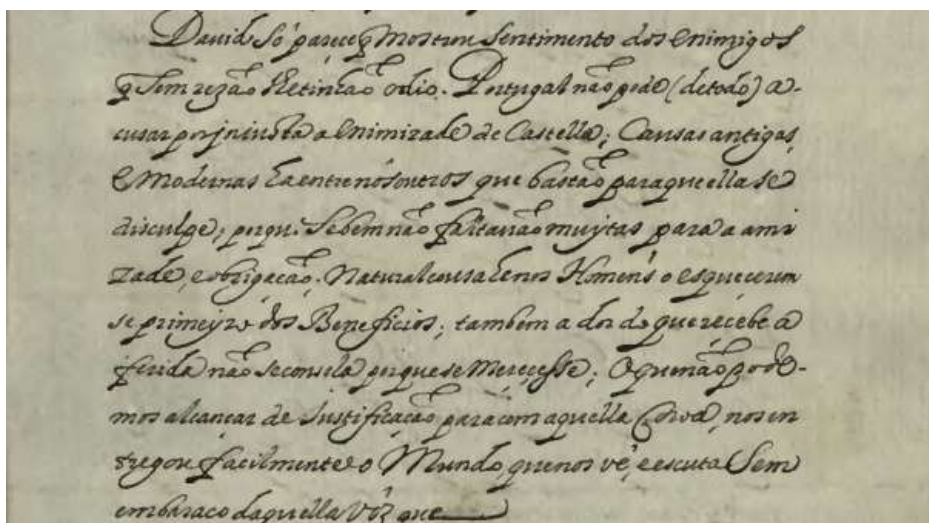 Dauid só parece q̃ Mostrou sentimento dos enimigos
q̃ sem rezão lhe tinhão odio. Portugal não pode (detodo) a-
cusar por injusta a enimizade de Castella; Causas antigas,
e Modernas ha entre nósoutros que bastão paraque ella se
disculpe; porq̃. Sebem não faltauão muytas para a ami
zade, e obrigação. Natural cousa he nos Homens o esquecerem
se primeyro dos Beneficios; tambem a dor do que recebe a
ferida não se consola porque se Merecesse; O que não pode-
mos alcançar de Iustificação para com aquella Coroa, nos en
tregou facilmente o Mundo que nos vé, e escuta Sem
embaraço daquella Vóz que